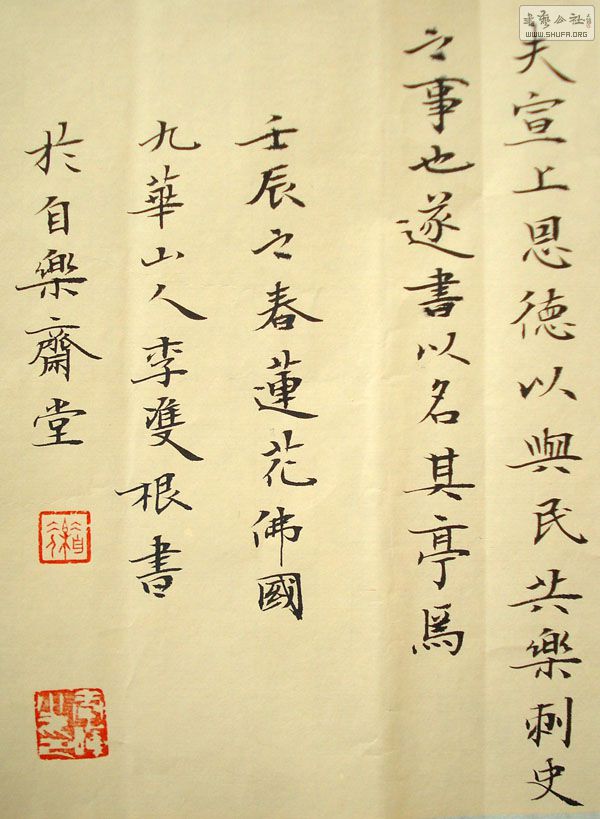 夫宣上恩德以與民共樂刺史
之事也遂書以名其亭焉
壬辰之春蓮花佛國
九華山人李雙根書
於自樂齋堂
書藝公社
WWW.SHUFA.ORG